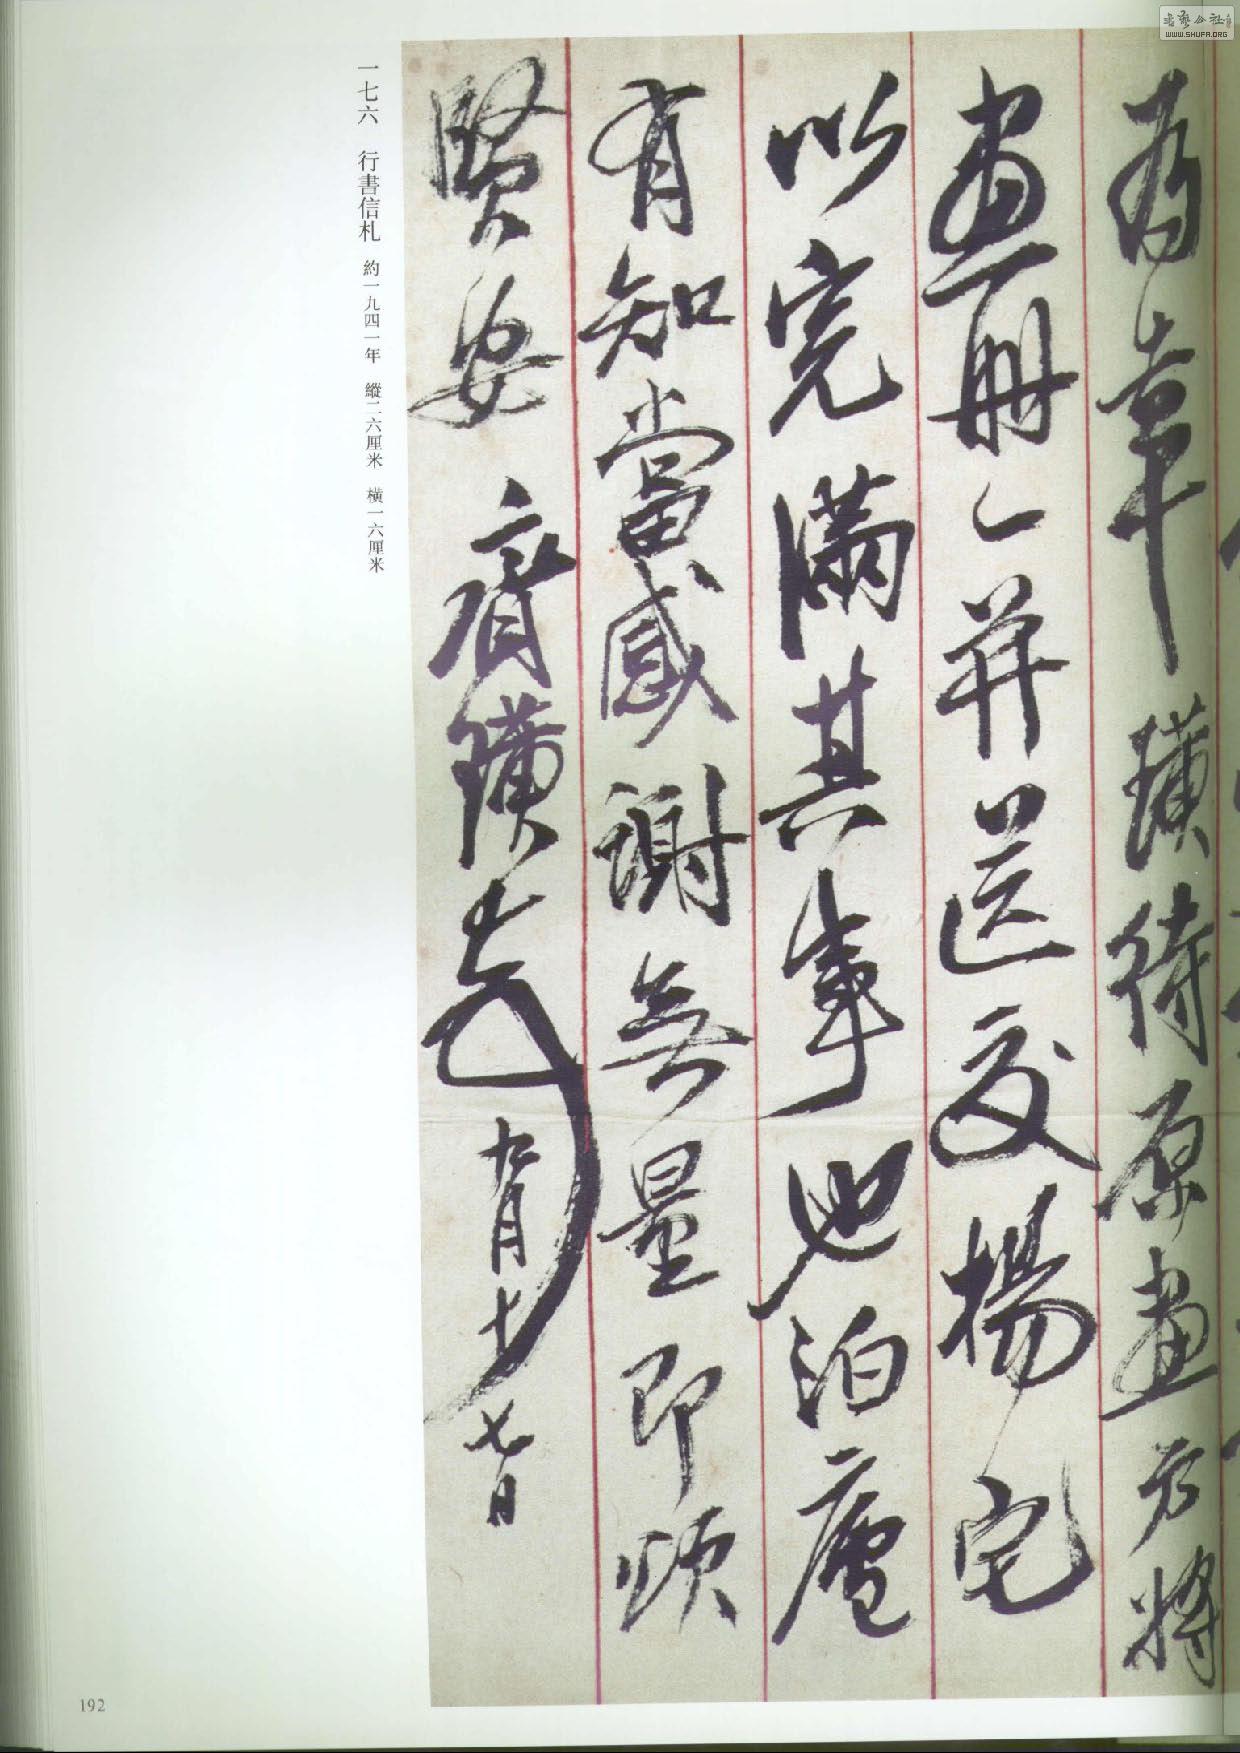 為幸璜待原畫方將
畫冊一并送交楊宅
以完滿其事也泊廬
有知當感謝無量即頌
賢安 齊璜 九月十七日
一七六 行書信札 約一九四一年 縱二六厘米 橫一六厘米
192
書藝公社
WWW.SHUFA.ORG